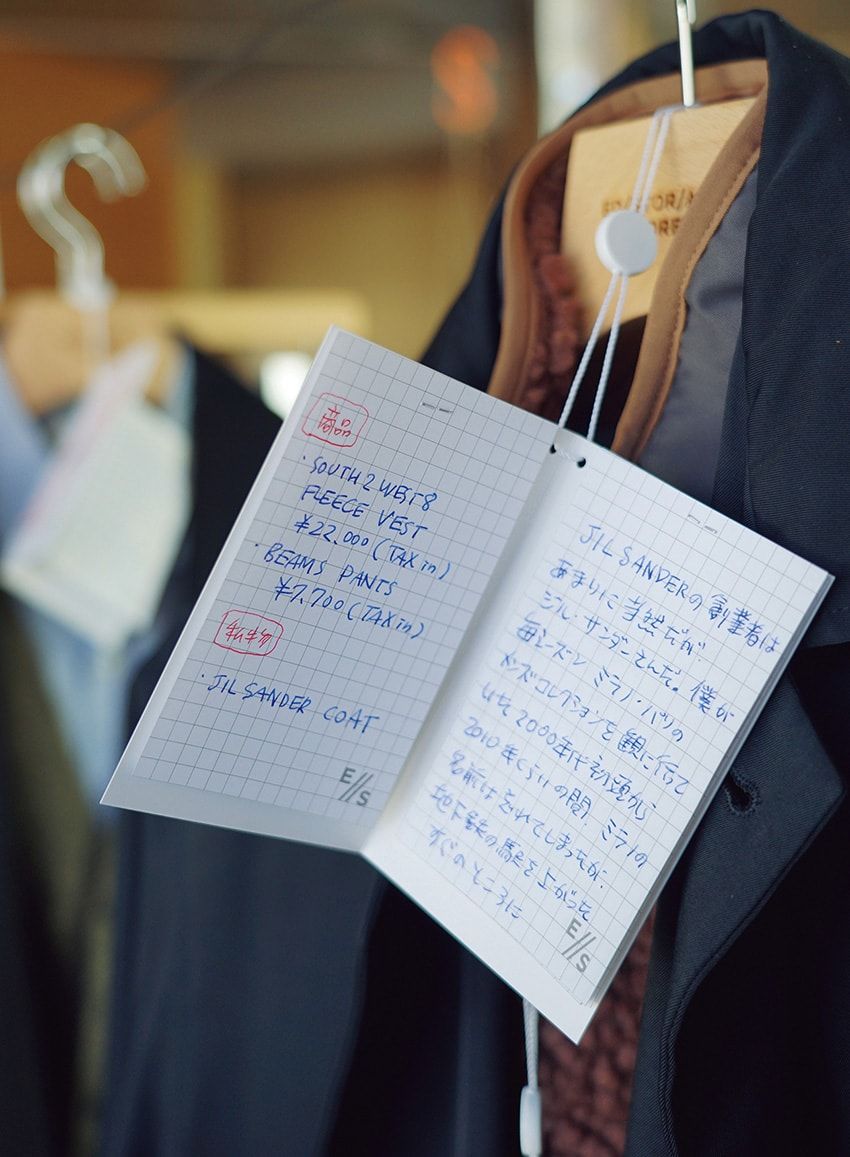 商品
・SOUTH2 WEST8
FLEECE VEST
¥22.000 (TAX in)
・BEAMS PANTS
¥7.700 (TAX in)
私物
・JIL SANDER COAT
E//S
JIL SANDERの創業者は
あまりに当然だが.
ジル・サンダーさんだ。僕が
毎シーズン ミラノ・パリの
メンズコレクションを観に行って
いた2000年代初頭から
2010年くらいの間. ミラノの
名前は忘れてしまったが.
地下鉄の駅を上がった
すぐのところに
E//S